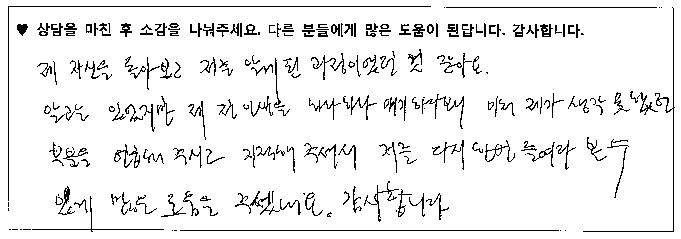 ♥ 상담을 마친 후 소감을 나눠주세요. 다른 분들에게 많은 도움이 된답니다. 감사합니다.
제 자신을 돌아보고 저를 알게된 과정이었던 것 같아요.
알고는 있었지만 제 전 인생을 하나하나 얘기하다보니 미처 제가 생각 못했던
부분을 말씀해 주시고 지적해 주셔서 저를 다시 한번 들여다 볼 수
있게 많은 도움을 주셨네요. 감사합니다